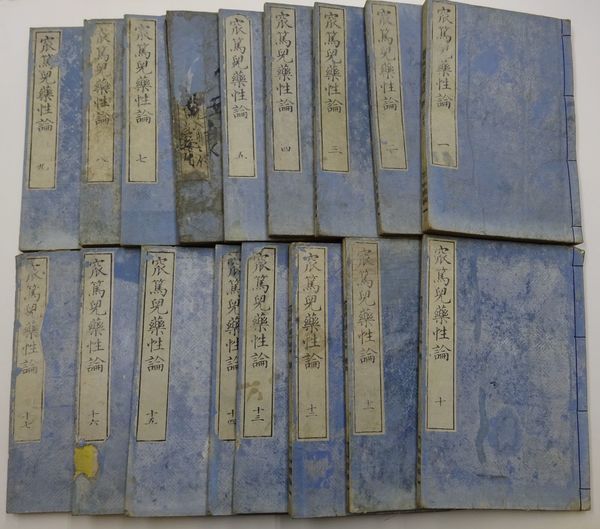 窊篤兒藥性論 一
窊篤兒藥性論 二
窊篤兒藥性論 三
窊篤兒藥性論 四
窊篤兒藥性論 五
窊篤兒藥性論 七
窊篤兒藥性論 八
窊篤兒藥性論 九
窊篤兒藥性論 十
窊篤兒藥性論 十一
窊篤兒藥性論 十二
窊篤兒藥性論 十三
窊篤兒藥性論 十四
窊篤兒藥性論 十五
窊篤兒藥性論 十六
窊篤兒藥性論 十七